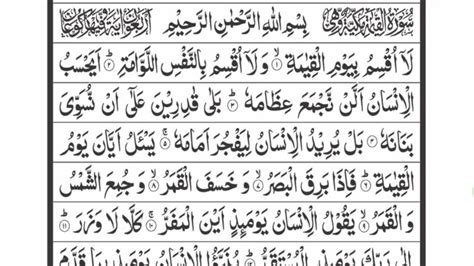 سُوْرَةُ الْقِيٰمَةِ مَكِّيَّةٌ وَّهِیَ بِسْمِ اللّٰهِ الرَّحْمٰنِ الرَّحِيْمِ اَرْبَعُوْنَ اٰيَةً وَّفِيْهَا رُكُوْعَانِ
لَاۤ اُقْسِمُ بِيَوْمِ الْقِيٰمَةِ ۙ﴿۱﴾ وَلَاۤ اُقْسِمُ بِالنَّفْسِ اللَّوَّامَةِ ؕ﴿۲﴾ اَيَحْسَبُ
الْاِنْسَانُ اَلَّنْ نَّجْمَعَ عِظَامَهٗ ؕ﴿۳﴾ بَلٰى قٰدِرِيْنَ عَلٰۤى اَنْ نُّسَوِّىَ
بَنَانَهٗ ﴿۴﴾ بَلْ يُرِيْدُ الْاِنْسَانُ لِيَفْجُرَ اَمَامَهٗ ۚ﴿۵﴾ يَسْـَٔلُ اَيَّانَ يَوْمُ
الْقِيٰمَةِ ؕ﴿۶﴾ فَاِذَا بَرِقَ الْبَصَرُ ۙ﴿۷﴾ وَ خَسَفَ الْقَمَرُ ۙ﴿۸﴾ وَ جُمِعَ الشَّمْسُ
وَ الْقَمَرُ ۙ﴿۹﴾ يَقُوْلُ الْاِنْسَانُ يَوْمَئِذٍ اَيْنَ الْمَفَرُّ ۚ﴿۱۰﴾ كَلَّا لَا وَزَرَ ؕ﴿۱۱﴾
اِلٰى رَبِّكَ يَوْمَئِذِ ۨالْمُسْتَقَرُّ ؕ﴿۱۲﴾ يُنَبَّؤُا الْاِنْسَانُ يَوْمَئِذٍۭ بِمَا قَدَّمَ